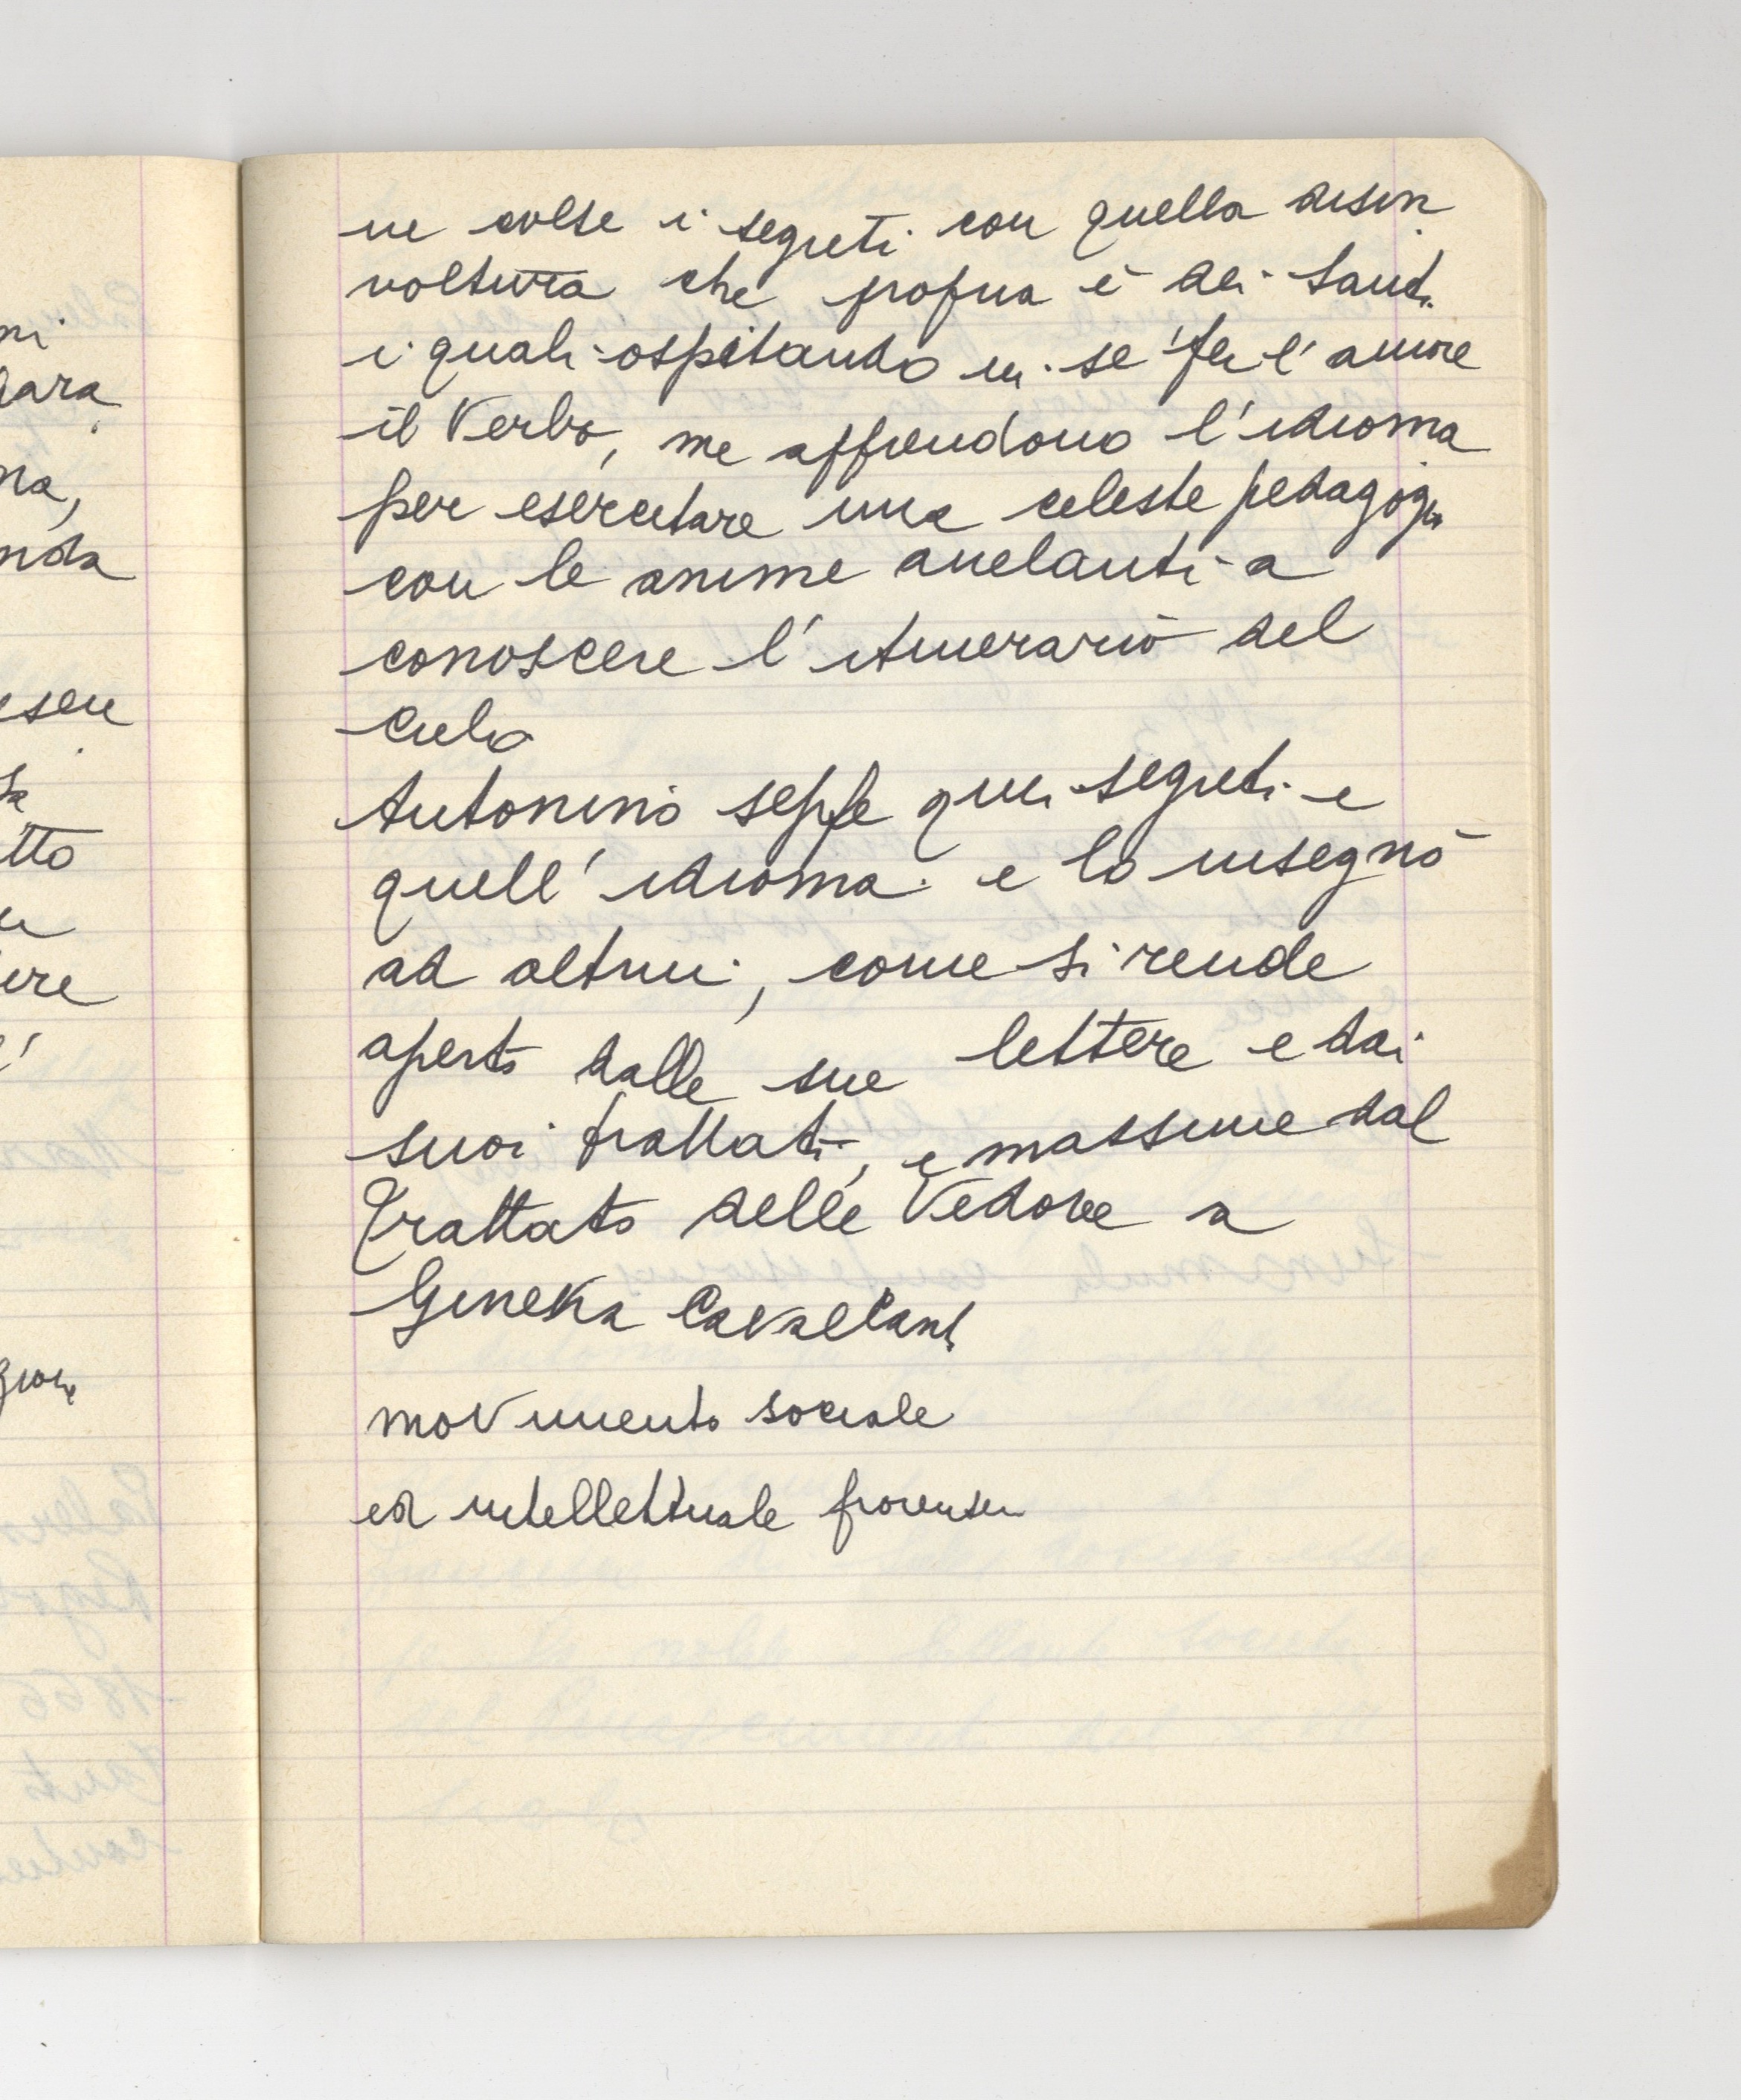 ne colse i segreti con quella disin
voltura che propria è dei Santi
i quali ospitando in se per l'amore
il Verbo, ne apprendono l'idioma
per esercitare una celeste pedagogia
con le anime anelanti a
conoscere l'itinerario del
Cielo
Antonino seppe quei segreti e
quell'idioma e lo insegnò
ad altrui, come si rende
aperto dalle sue lettere e dai
suoi trattati, e massime dal
Trattato delle Vedove a
Ginevra Cavalcanti
movimento sociale
ed intellettuale fiorentin